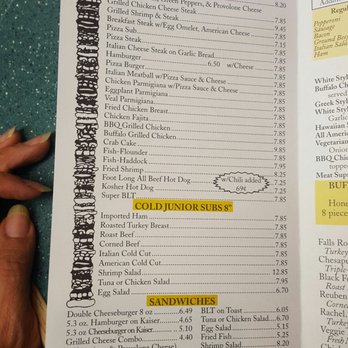 Green Peppers, & Provolone Cheese
Grilled Chicken & Cheese 8.20
Grilled Shrimp & Steak
Breakfast Steak w/Egg Omelet, American Cheese 7.85
Pizza Sub 9.45
Pizza Steak 7.85
Italian Cheese Steak on Garlic Bread 7.85
Hamburger 6.50 w/Cheese
Pizza Burger
Italian Meatball w/Pizza Sauce & Cheese
Chicken Parmigiana w/Pizza Sauce & Cheese
Eggplant Parmigiana 7.85
Veal Parmigiana 7.85
Fried Chicken Breast 7.85
Chicken Fajita 7.85
BBQ Grilled Chicken 7.85
Buffalo Grilled Chicken 7.85
Crab Cake 7.85
Fish-Flounder 7.85
Fish-Haddock 7.85
Fried Shrimp 8.25
Foot Long All Beef Hot Dog
w/Chili added
69¢
Kosher Hot Dog
Super BLT 7.85
COLD JUNIOR SUBS 8"
Imported Ham 7.85
Roasted Turkey Breast 7.85
Roast Beef 7.85
Corned Beef 7.85
Italian Cold Cut 7.85
American Cold Cut 7.85
Shrimp Salad 12.85
Tuna or Chicken Salad 7.95
Egg Salad 7.85
SANDWICHES
Double Cheeseburger 8 oz 6.49
5.3 oz. Hamburger on Kaiser 4.65
5.3 oz Cheeseburger on Kaiser 5.10
Grilled Cheese Combo 4.40
BLT on Toast 6.05
Tuna or Chicken Salad 6.70
Egg Salad 5.15
Fried Fish 5.25
Shrimp Salad 8.20
Regu
Pepperoni
Sausage
Bacon
Ground Beef
Italian Salad
Ham
White Sty
White Styl
served
Greek Style
White Style
Garlic
Hawaiian
All America
Vegetarian
Onio
BBQ Chick
topped
Meat Supr
BUF
Hone
8 piece
Falls Ro
Turkey
Chesap
Turke
Black F
Roast
Reuben
Corne
Rachel
Turkey